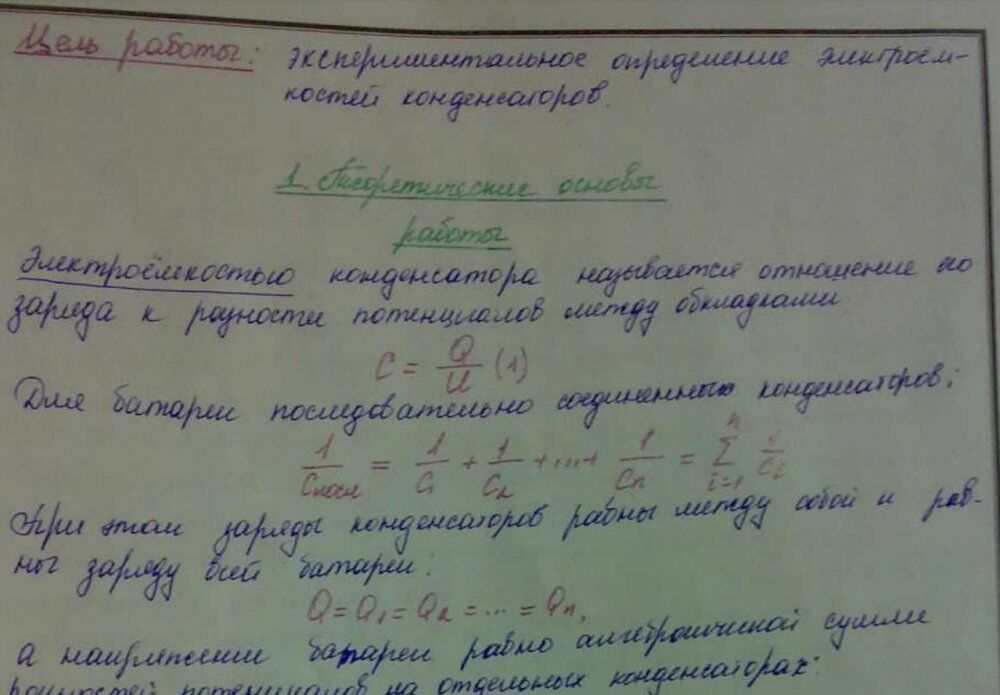 Цель работы: экспериментальное определение электроём-
костей конденсаторов.
1. Теоретические основы
работы
Электроёмкостью конденсатора называется отношение его
заряда к разности потенциалов между обкладками
C = Q/U (1)
Для батареи последовательно соединенных конденсаторов:
1/Cпосл = 1/C₁ + 1/C₂ + ... + 1/Cₙ = ∑ⁿᵢ₌₁ 1/Cᵢ
При этом заряды конденсаторов равны между собой и рав-
ны заряду всей батареи:
Q = Q₁ = Q₂ = ... = Qₙ,
а напряжение батареи равно алгебраической сумме
разностей потенциалов на отдельных конденсаторах: